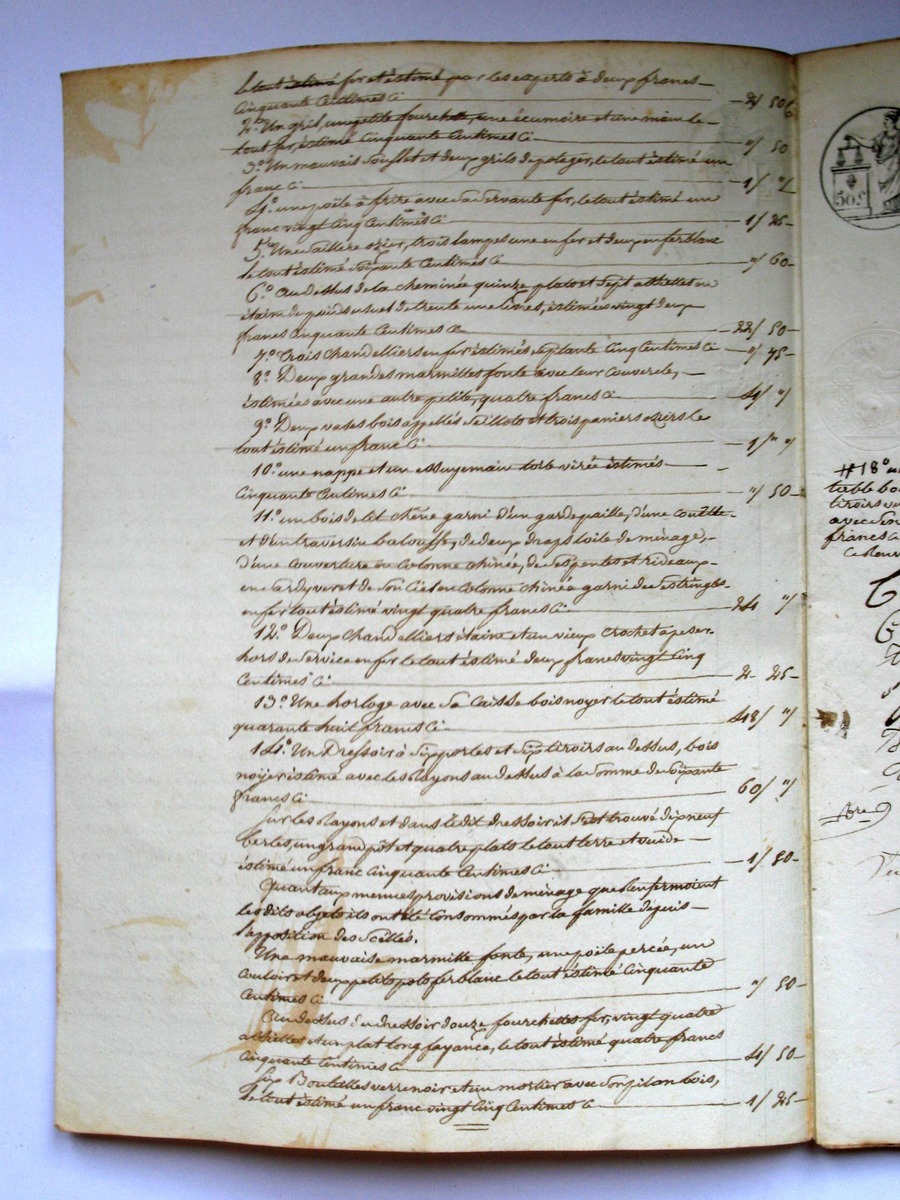 le tout estimé fer et estimé par les experts à deux francs
cinquante centimes ci — 2/ 50 c
2.° Un gril, une petite fourchette, une écumoire et une main le
tout fer, estimé cinquante centimes ci — "/ 50
3.° Un mauvais soufflet et deux grils de potager, le tout estimé un
franc ci — 1/ "/
4.° une poële à frire avec sa servante fer, le tout estimé un
franc vingt cinq centimes ci — 1/ 25
5.° Une saillere ozier, trois lampes une en fer et deux en fer blanc
le tout estimé soixante centimes ci — "/ 60
6.° Au dessus de la cheminée quinze plats et sept assiettes en
étaim du poids usuel de trente une livres, estimées vingt deux
francs cinquante centimes ci — 22/ 50
7.° Trois chandelliers en fer estimés septante cinq centimes ci — "/ 75
8.° Deux grandes marmittes fonte avec leur couvercle,
estimées avec une autre petite, quatre francs ci — 4/ "/
9.° Deux vases bois appellés seillots et trois paniers oziers le
tout estimé un franc ci — 1/ "/
10.° une nappe et un essuyemain toile virée estimés
cinquante centimes ci — "/ 50
11.° un bois de lit chêne garni d'un garde paille, d'une
et d'un traversin balouffe, de deux draps toile de ménage,
d'une couverture en colonne chinée, de ses pentes et rideaux
en verd et de son ciel en colonne chinée garni de ses tringles
en fer tout estimé vingt quatre francs ci — 24 "/
12.° Deux chandelliers étaim et un vieux crochet à peser
hors de service en fer le tout estimé deux francs vingt cinq
centimes ci — 2 25
13.° Une horloge avec sa caisse bois noyer le tout estimé
quarante huit francs ci — 48/ "/
14.° Un Dressoir à six portes et six tiroirs au dessus, bois
noyer estimé avec les rayons au dessus à la somme de soixante
francs ci — 60/ "/
Sur les rayons et dans le dit dressoir il s'est trouvé dix neuf
berles, un grand pot et quatre plats le tout terre et vuide
estimé un franc cinquante centimes ci — 1/ 50
Quant aux menues provisions de ménage que renfermoient
les dits objets ils ont été consommés par la famille depuis
l'apposition des scellés.
Une mauvaise marmitte fonte, une poële percée, un
couloir et deux petits pots fer blanc le tout estimé cinquante
centimes ci — "/ 50
Au dessus du dressoir douze fourchettes fer, vingt quatre
assiettes et un plat long fayance, le tout estimé quatre francs
cinquante centimes ci — 4/ 50
Six Bouteilles verre noir et un mortier avec son pilon bois,
le tout estimé un franc vingt cinq centimes ci — 1/ 25
50 c.
# 18° un
table bo
tiroirs
avec
francs ci